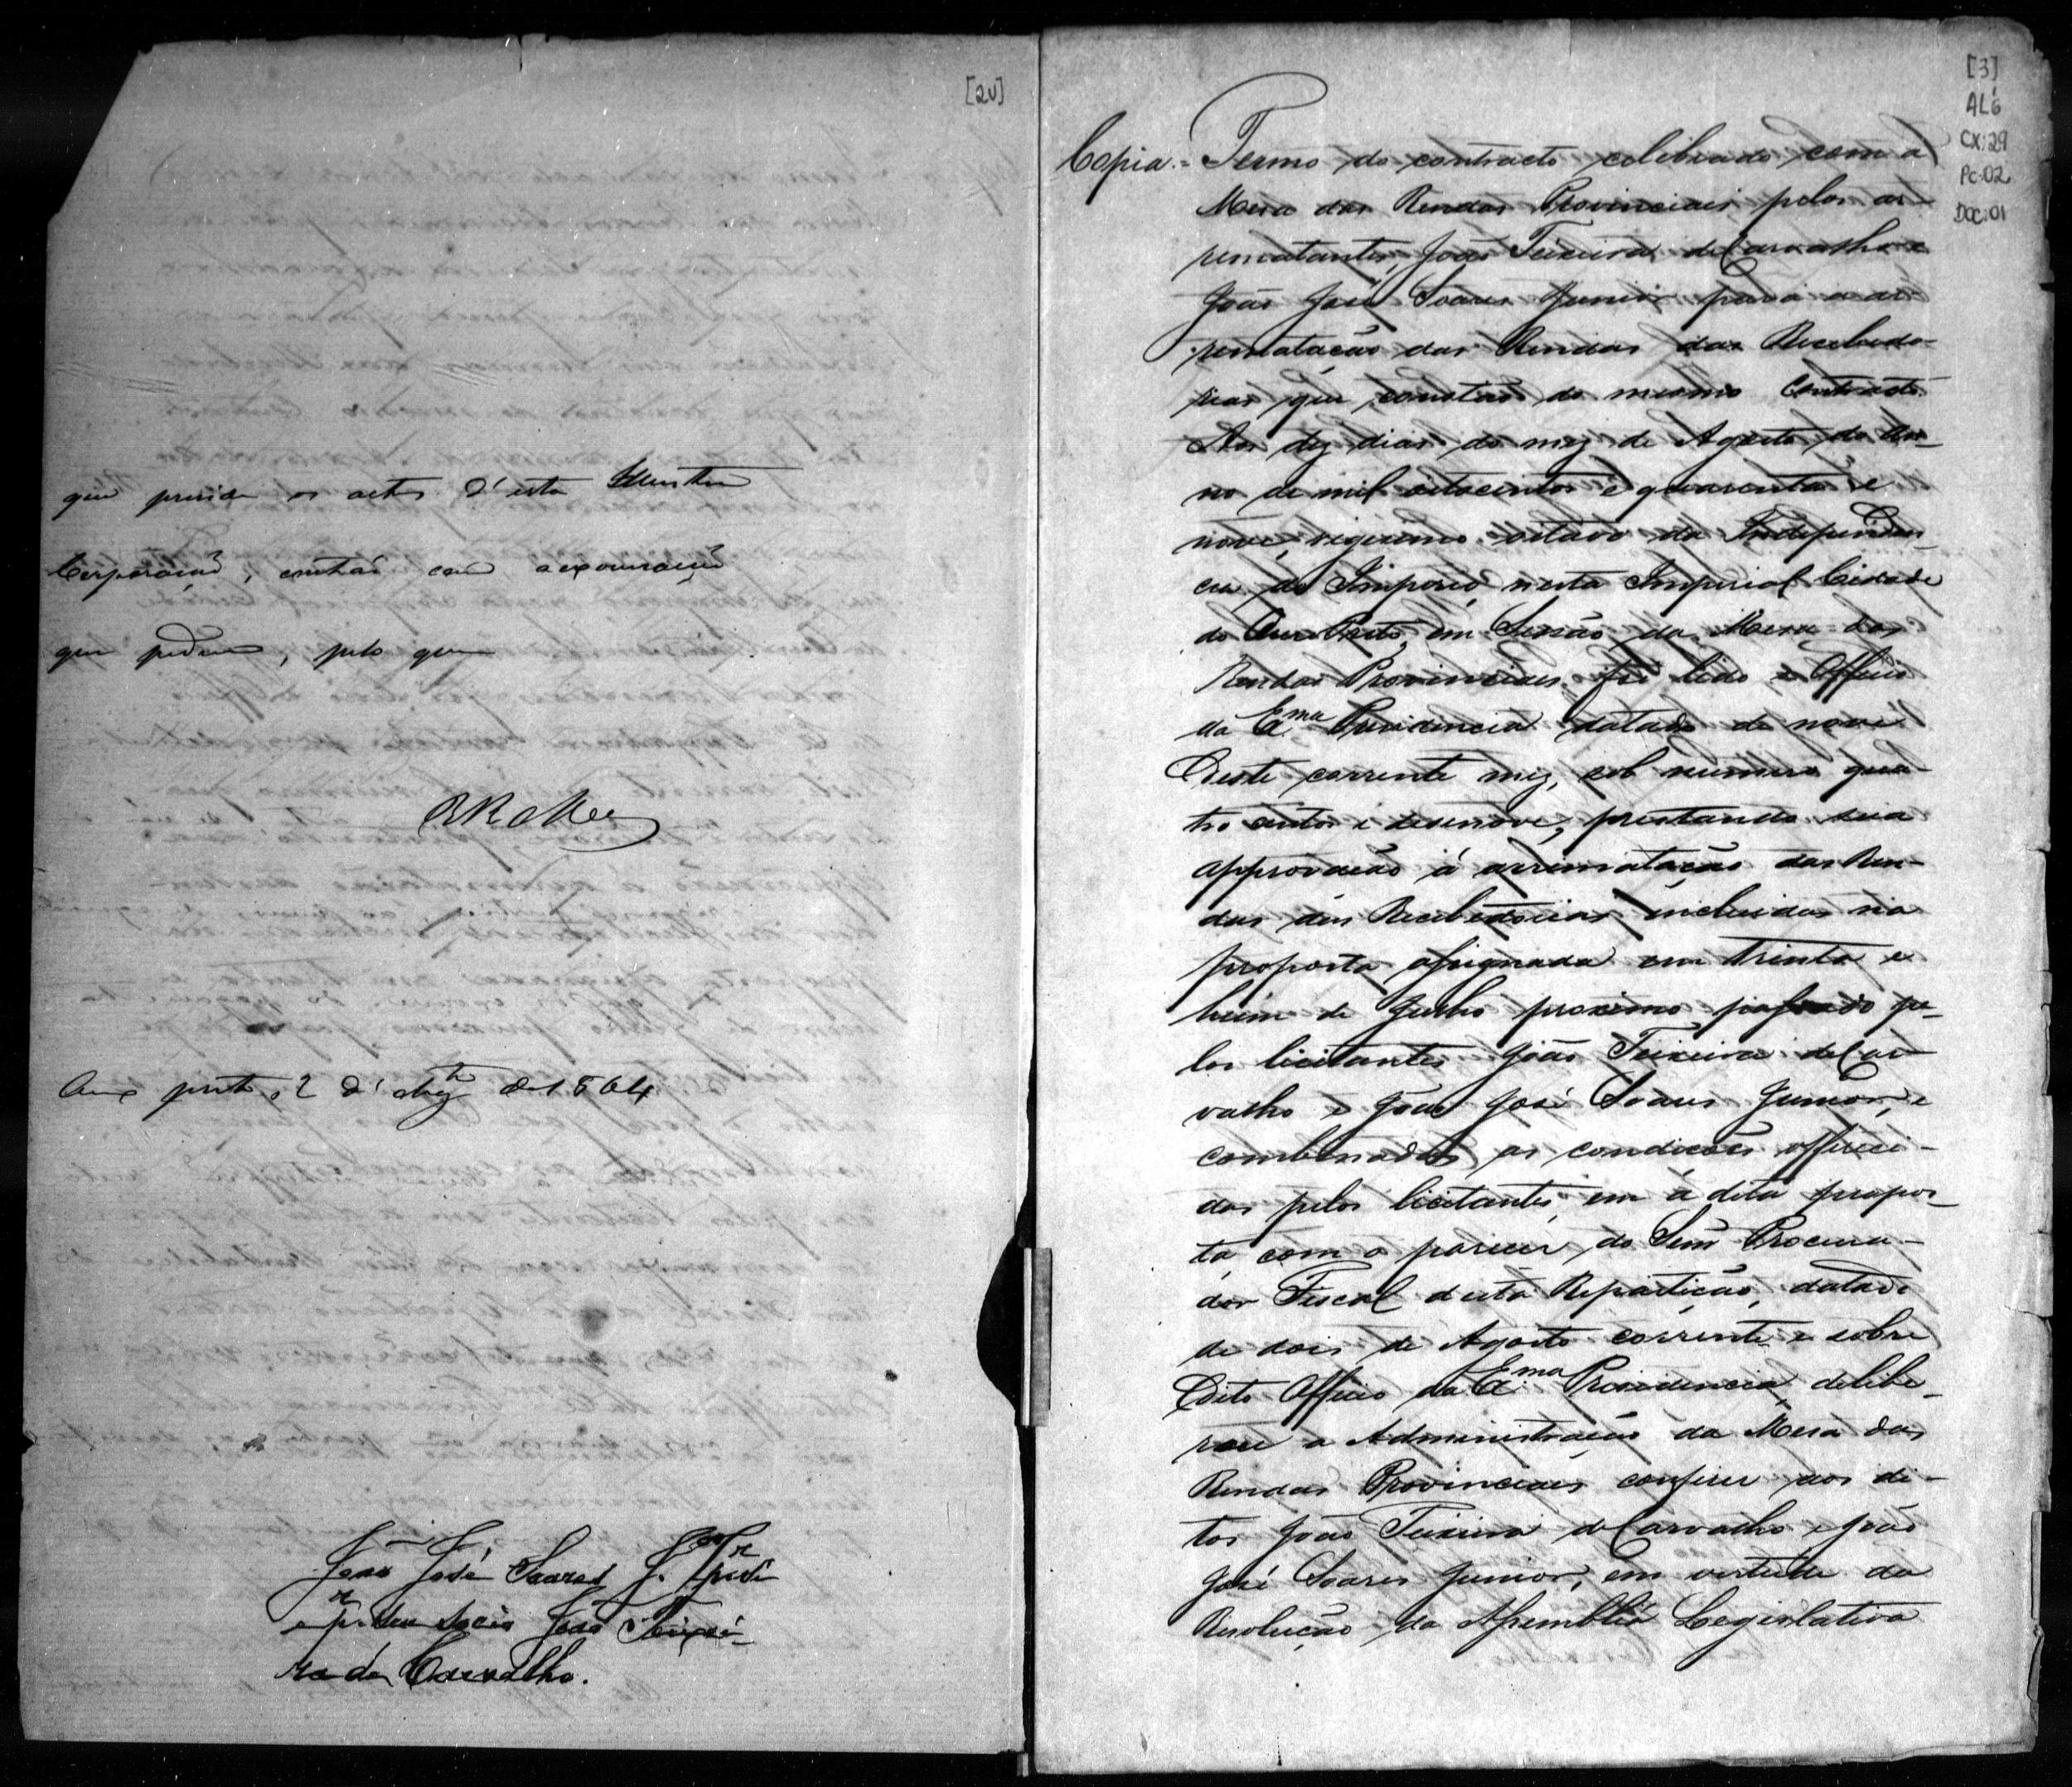 [2v]
que preside os actos d'esta Illustre
Corporação, contão com a approvação
que pedem, pelo que
E R Mce
Ouro preto, 2 d' de 1864
João José Soares Jor por si
e pr seu socio João Teixei-
ra de Carvalho.
[3]
AL6
CX:29
PC:02
DOC:01
Copia = Termo do contracto celebrado com a
Mesa das Rendas Provinciaes pelos ar-
rematantes, João Teixeira de Carvalho e
João José Soares Junior para a ar-
rematação das Rendas das Recebedo-
rias que constão do mesmo Contracto.
Aos dez dias do mez de Agosto do An-
no de mil oitocentos e quarenta e
nove, vigesimo oitavo da Independen-
cia do Imperio nesta Imperial Cidade
do Ouro Preto, em Sessão da Mesa das
Rendas Provinciaes, foi lido o Officio
da Exma Presidencia datado de nove
deste corrente mez, sob numero qua-
tro centos e desenove, prestando sua
approvação á arrematação das Ren-
das das Recebedorias incluidas na
proposta assignada em trinta e
hum de Julho proximo passado pe-
los licitantes João Teixeira de Car-
valho e João José Soares Junior, e
combinadas as condições offereci-
das pelos licitantes, em a dita propos-
ta com o parecer do Senr Procura-
dor Fiscal desta Repartição, datado
de dois de Agosto corrente e sobre
dito Officio da Exma Presidencia, delibe-
rou a Administração da Mesa das
Rendas Provinciaes conferir aos di-
tos João Teixeira de Carvalho e João
José Soares Junior, em virtude da
Resolução da Assembléa Legislativa